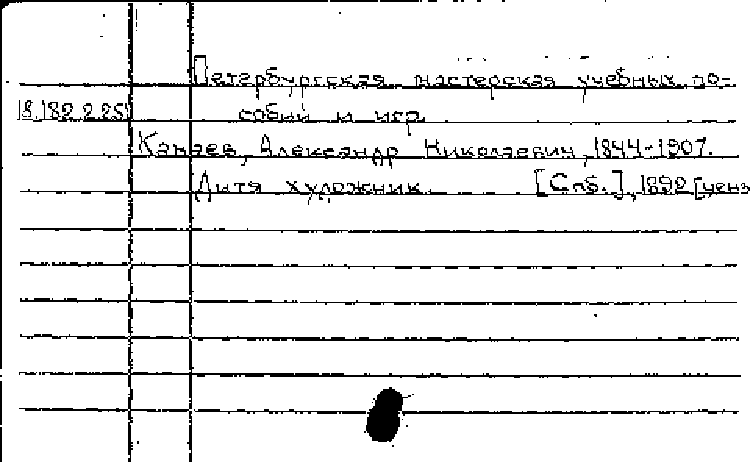 Петербургская мастерская учебных по-
18.182.2.251 собий и игр
Канаев, Александр Николаевич, 1844-1907.
Дитя художник. [Спб.], 1892 [ценз